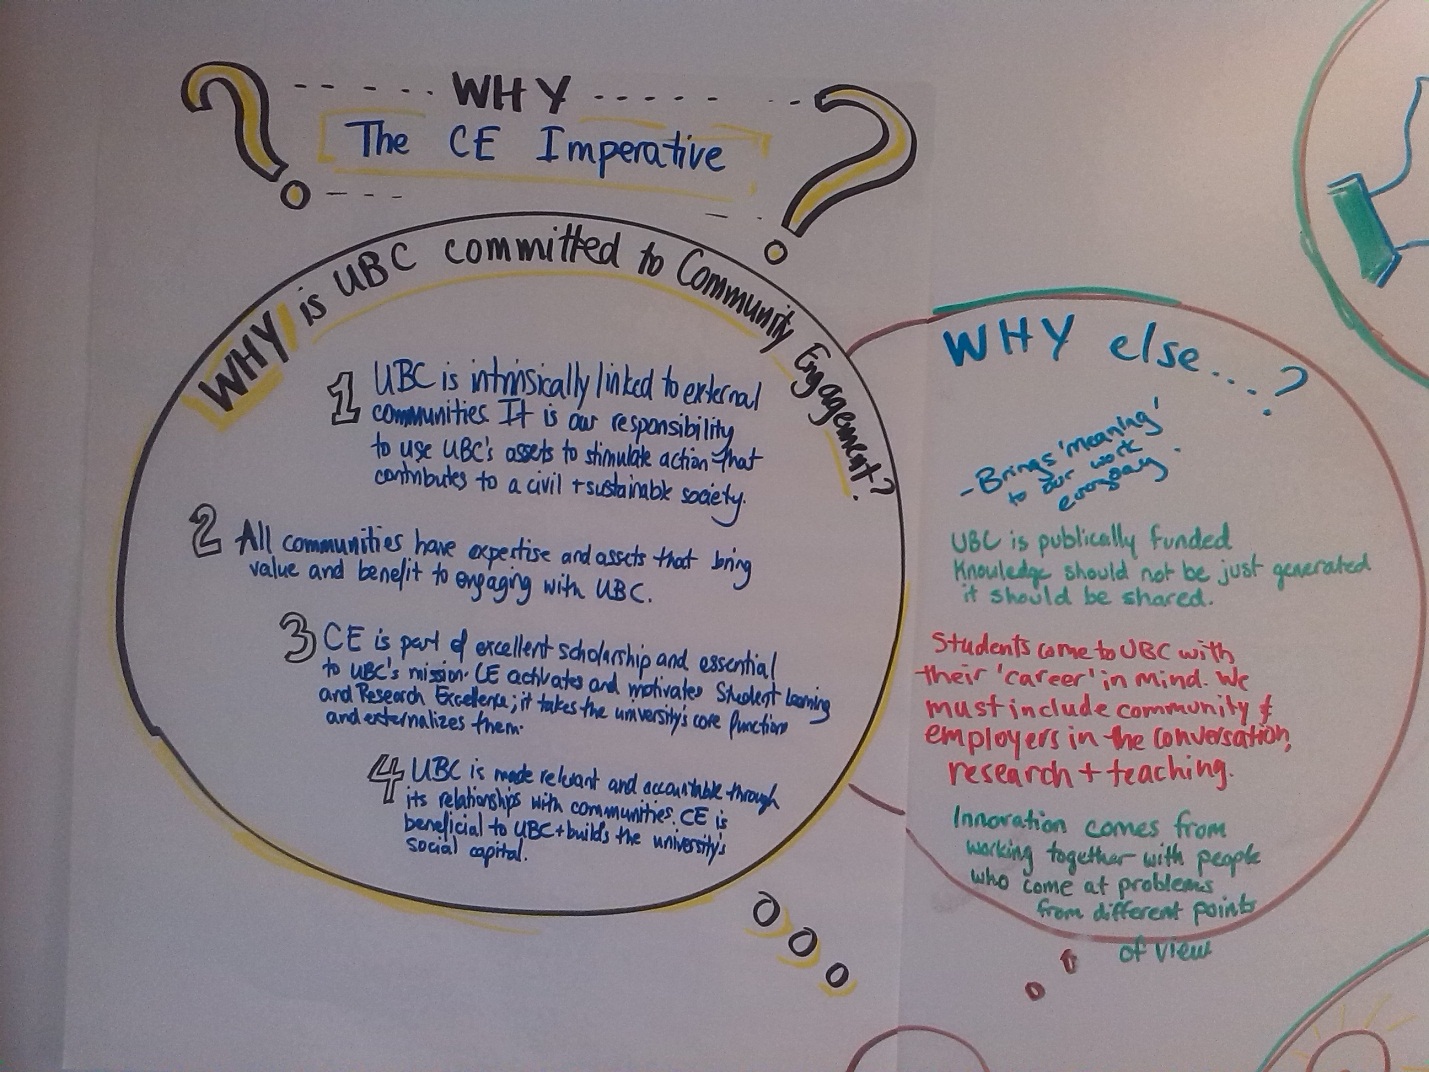 WHY
The CE Imperative
WHY is UBC committed to Community Engagement?
1 UBC is intrinsically linked to external
communities. It is our responsibility
to use UBC's assets to stimulate action that
contributes to a civil + sustainable society.
2 All communities have expertise and assets that bring
value and benefit to engaging with UBC.
3 CE is part of excellent scholarship and essential
to UBC's mission. CE activates and motivates Student Learning
and Research Excellence; it takes the university's core functions
and externalizes them.
4 UBC is made relevant and accountable through
its relationships with communities. CE is
beneficial to UBC + builds the university's
social capital.
WHY else...?
- Brings 'meaning'
to our work
everyday.
UBC is publically funded
Knowledge should not be just generated
it should be shared.
Students come to UBC with
their 'career' in mind. We
must include community &
employers in the conversation,
research + teaching.
Innovation comes from
working together with people
who come at problems
from different points
of view